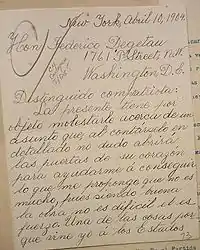 New York, Abril 10, 1904
Hon. Federico Degetau
1761 P Street, N.W.
Washington D.C.
Distinguido compatriota:
La presente tiene por
objeto molestarle acerca de un
asunto que, al contárselo en
detallado no dudo abrirá
las puertas de su corazón
para ayudarme á conseguir
lo que me propongo que no es
mucho, pues siendo buena
la obra no es difícil el es-
fuerzo. Una de las cosas por
que vine yo á los Estados